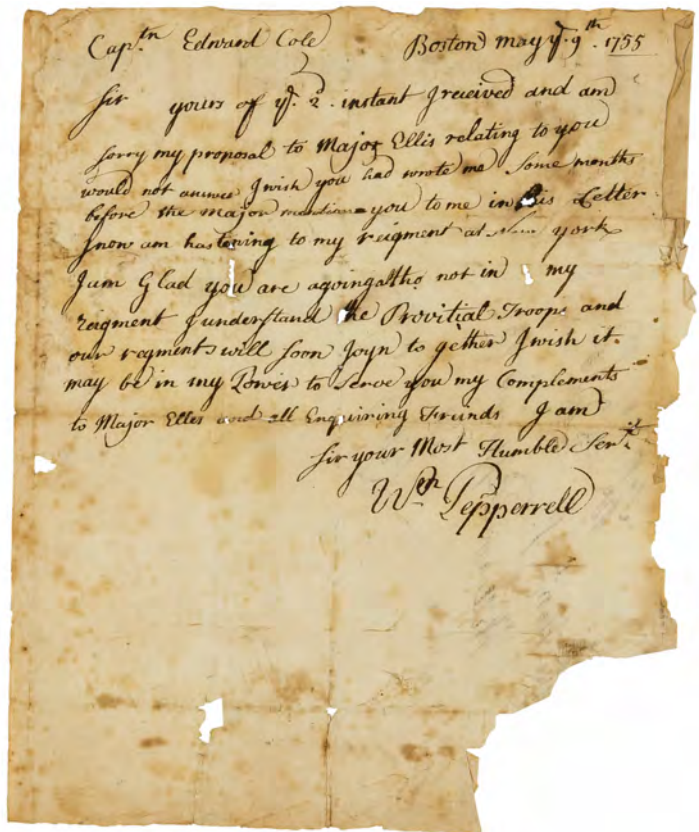 Capt.n Edward Cole Boston may ye. 9th. 1755
Sir yours of ye. 2d. instant I received and am
sorry my proposal to Major Ellis relating to you
would not answer I wish you had wrote me Some months
before the Major you to me in his Letter
I now am hastening to my reigment at New york
I am Glad you are agoing altho not in my
Reigment I understand the Provitial Troops and
our regments will soon Joyn to gether I wish it
may be in my Power to Serve you my Complements
to Major Elles and all Enquiring Frinds I am
Sir your Most Humble Servt.
Wm Pepperrell